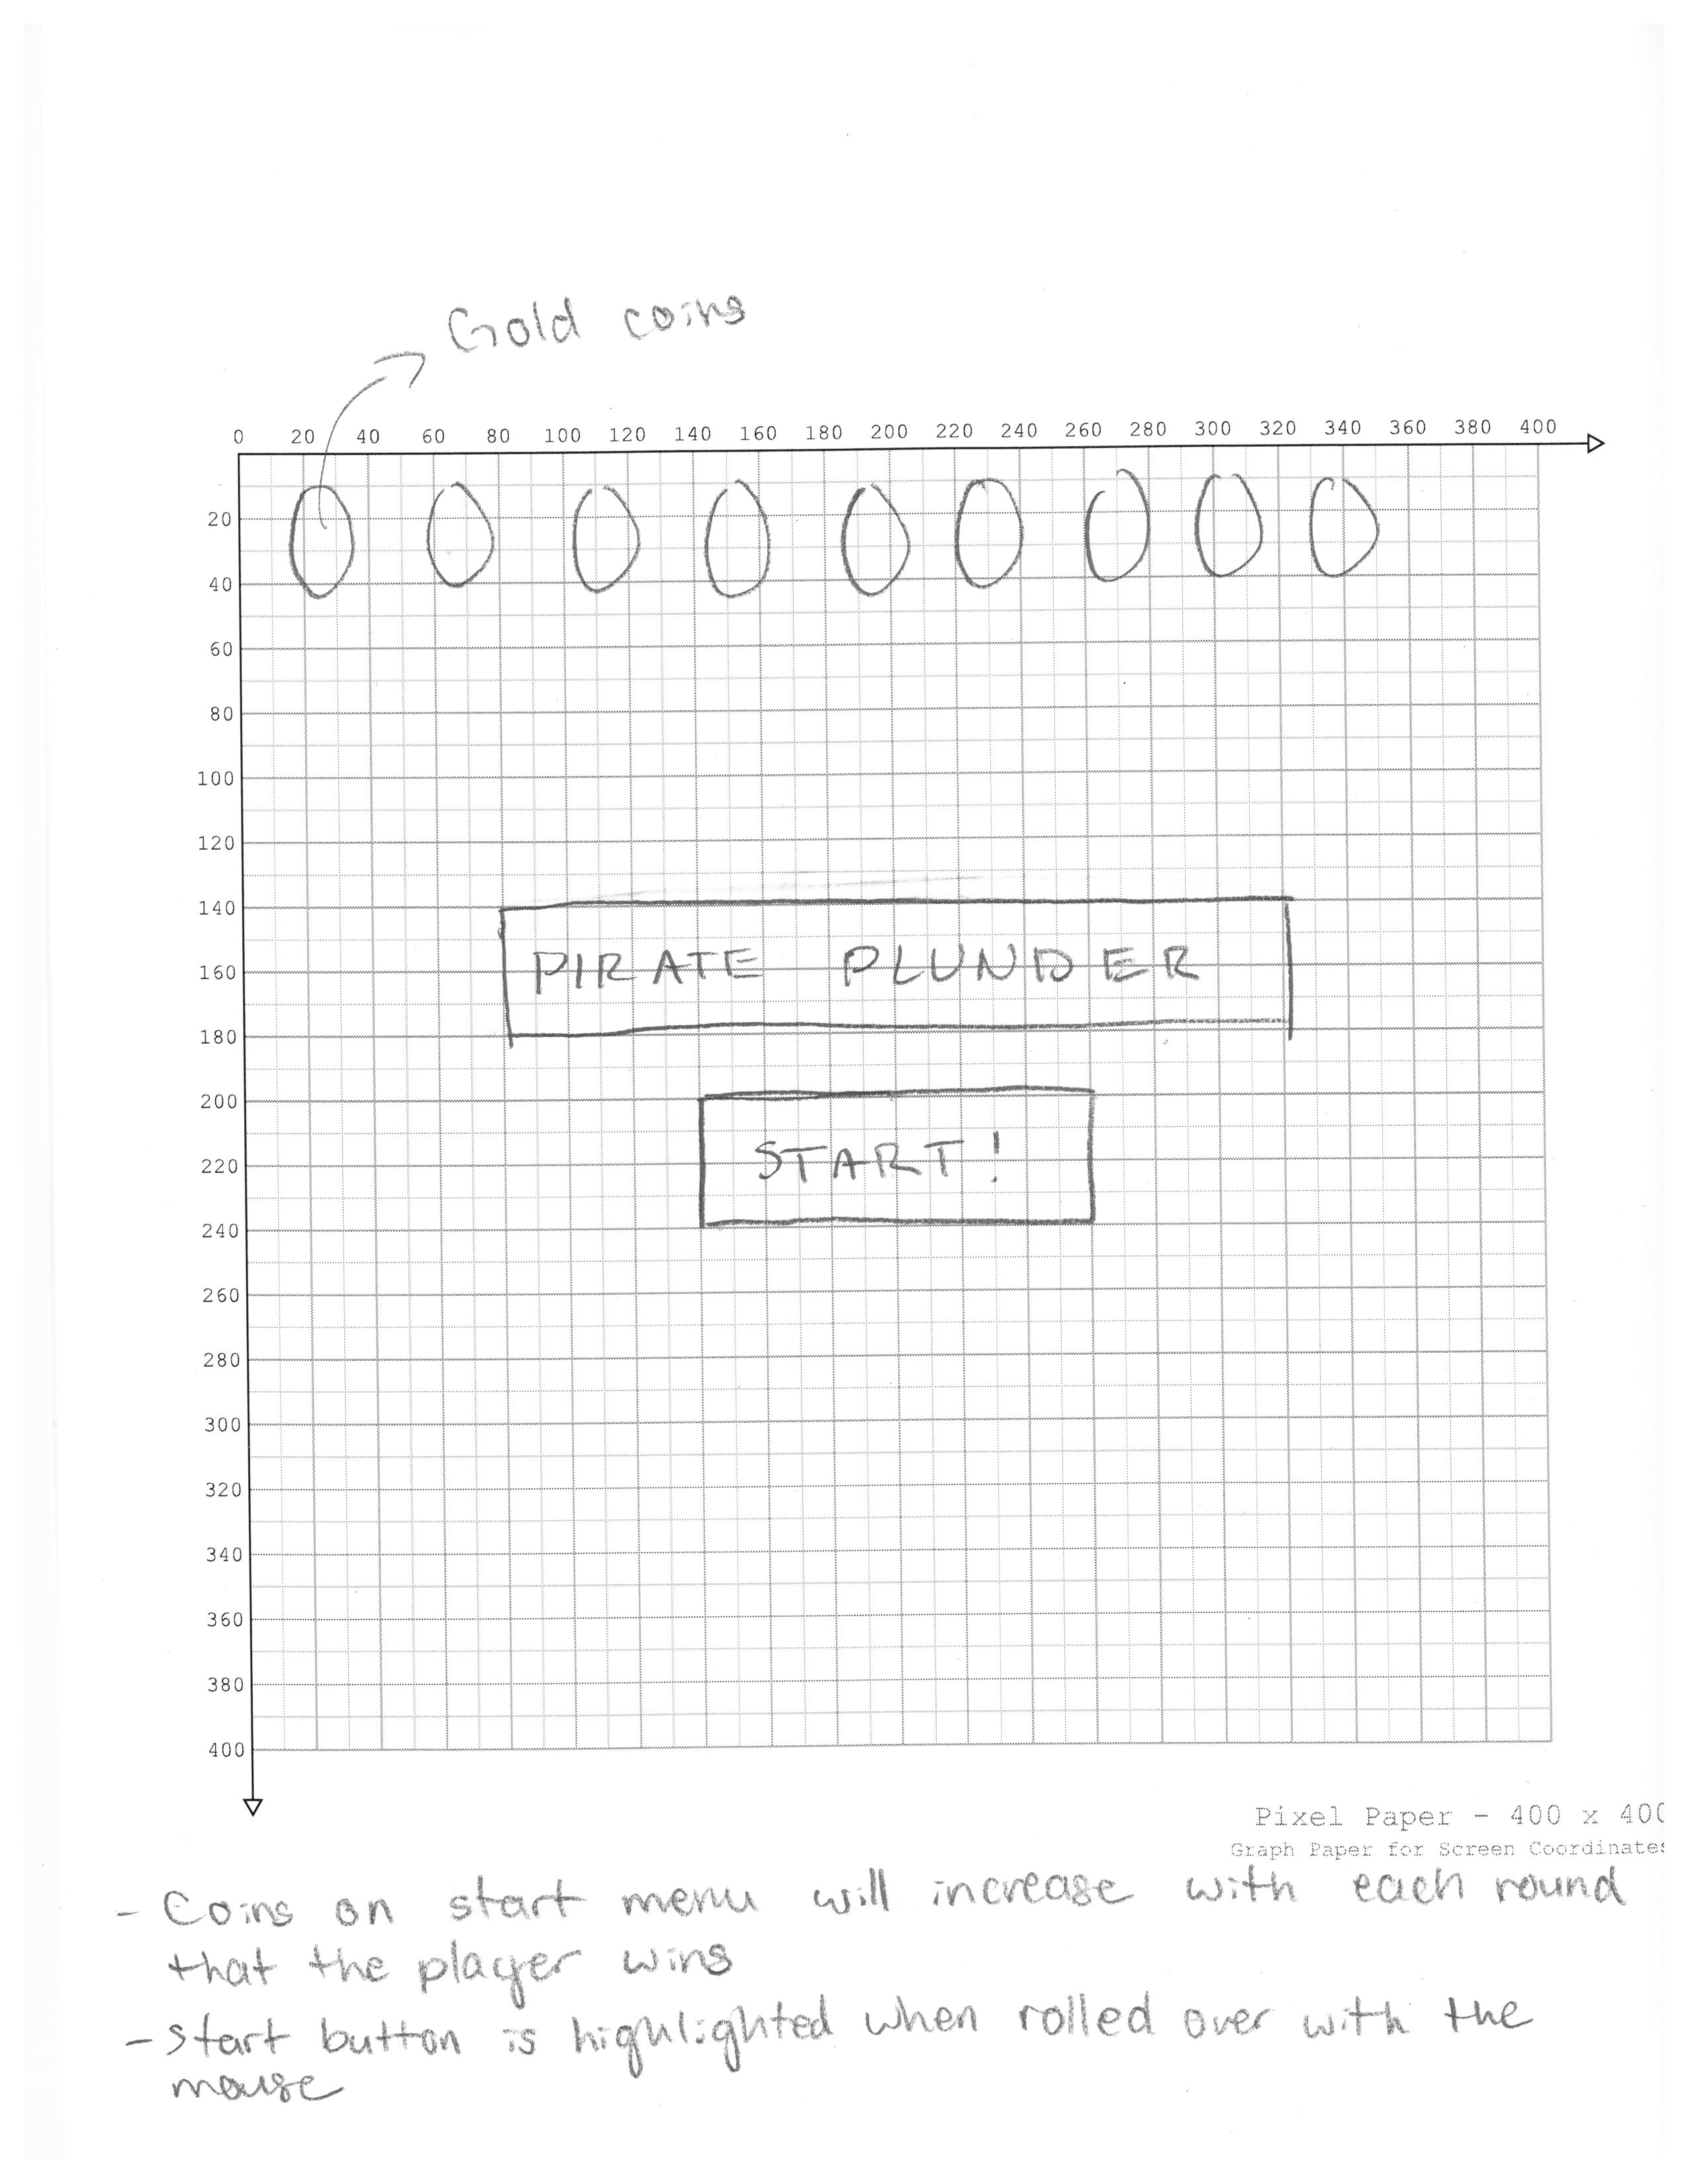 Gold coins
0 20 40 60 80 100 120 140 160 180 200 220 240 260 280 300 320 340 360 380 400
20
40
60
80
100
120
140
PIRATE PLUNDER
160
180
200
START!
220
240
260
280
300
320
340
360
380
400
Pixel Paper - 400 x 400
Graph Paper for Screen Coordinates
- Coins on start menu will increase with each round
that the player wins
- Start button is highlighted when rolled over with the
mouse